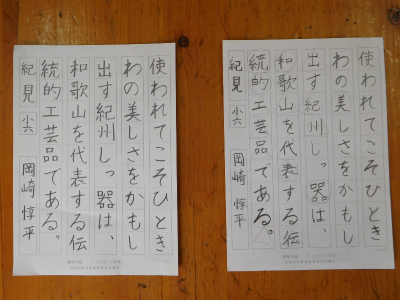 使われてこそひとき
わの美しさをかもし
出す紀州しっ器は、
和歌山を代表する伝
統的工芸品である。
紀見 小六 岡崎惇平
使われてこそひとき
わの美しさをかもし
出す紀州しっ器は、
和歌山を代表する伝
統的工芸品である。
紀見 小六 岡崎惇平